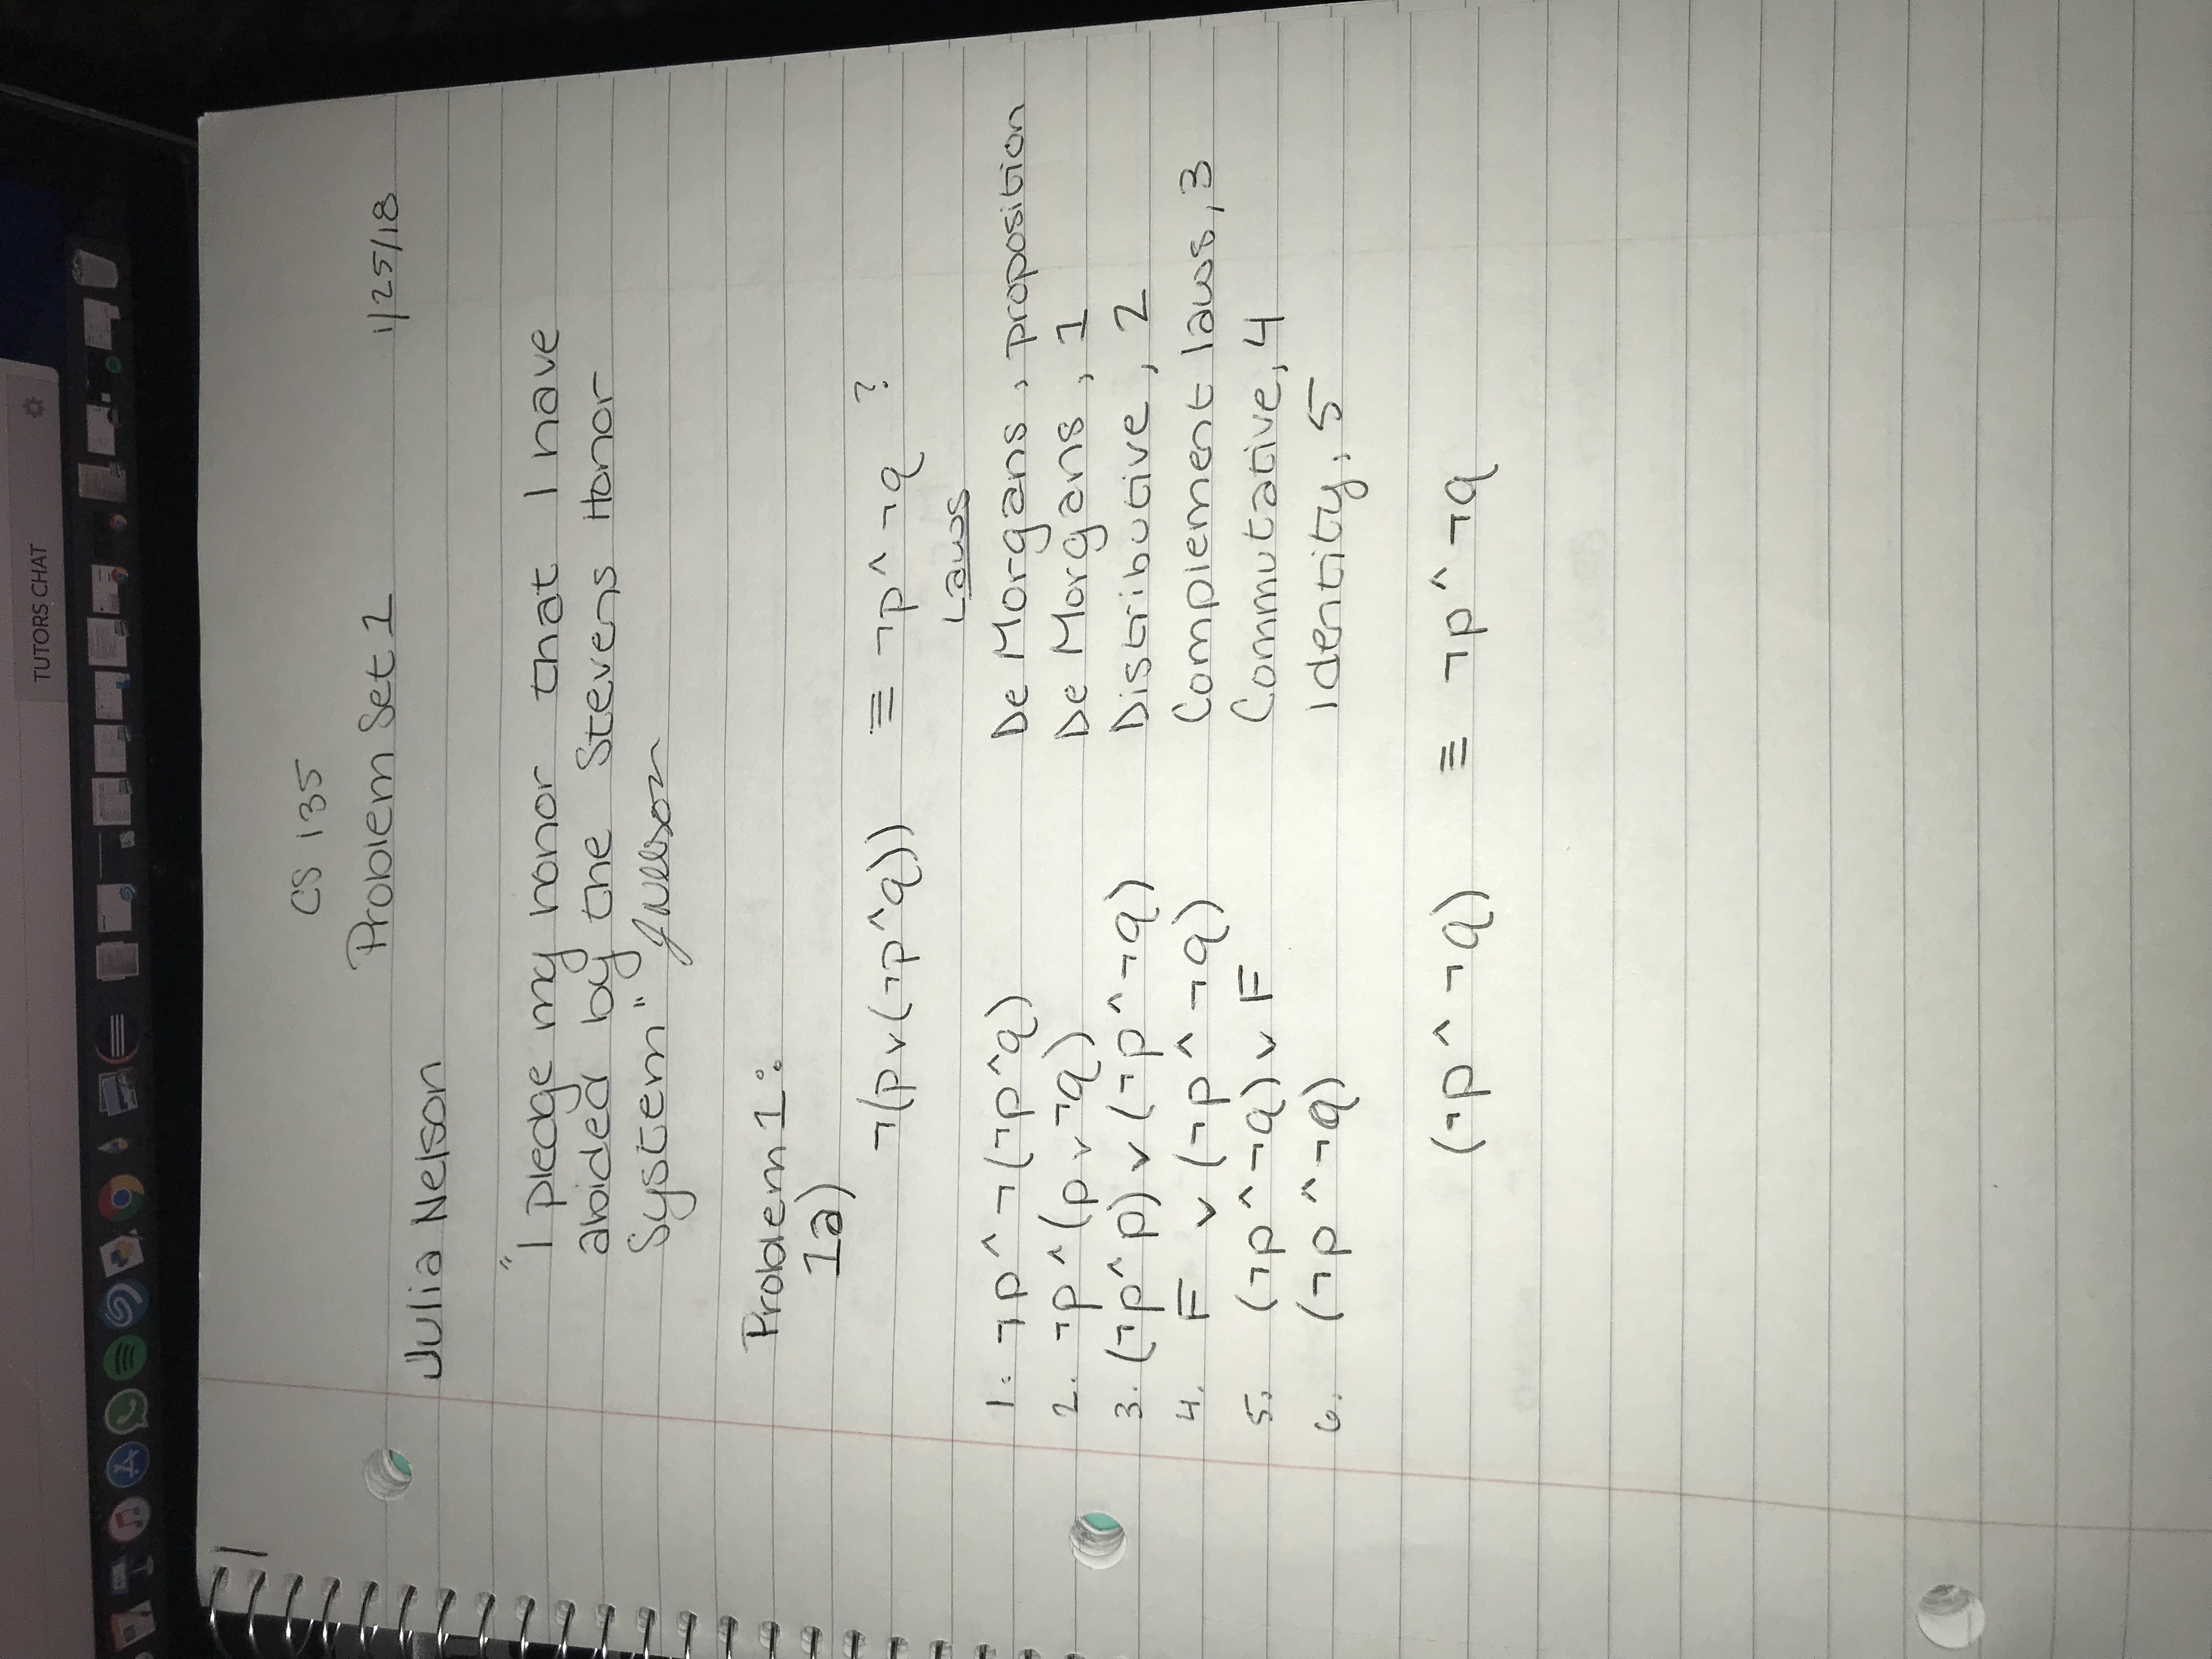 TUTORS CHAT
1
CS 135
Problem Set 1
1/25/18
Julia Nelson
"I pledge my honor that I have
abided by the Stevens Honor
System" JNelson
Problem 1:
1a)
¬(p∨(¬p^q)) ≡ ¬p^¬q ?
Laws
1. ¬p^¬(¬p^q) De Morgans, proposition
2. ¬p^(p∨¬q) De Morgans, 1
3. (¬p^p)∨(¬p^¬q) Distributive, 2
4. F ∨(¬p^¬q) Complement laws, 3
5. (¬p^¬q)∨F Commutative, 4
6. (¬p^¬q) Identity, 5
(¬p^¬q) ≡ ¬p^¬q